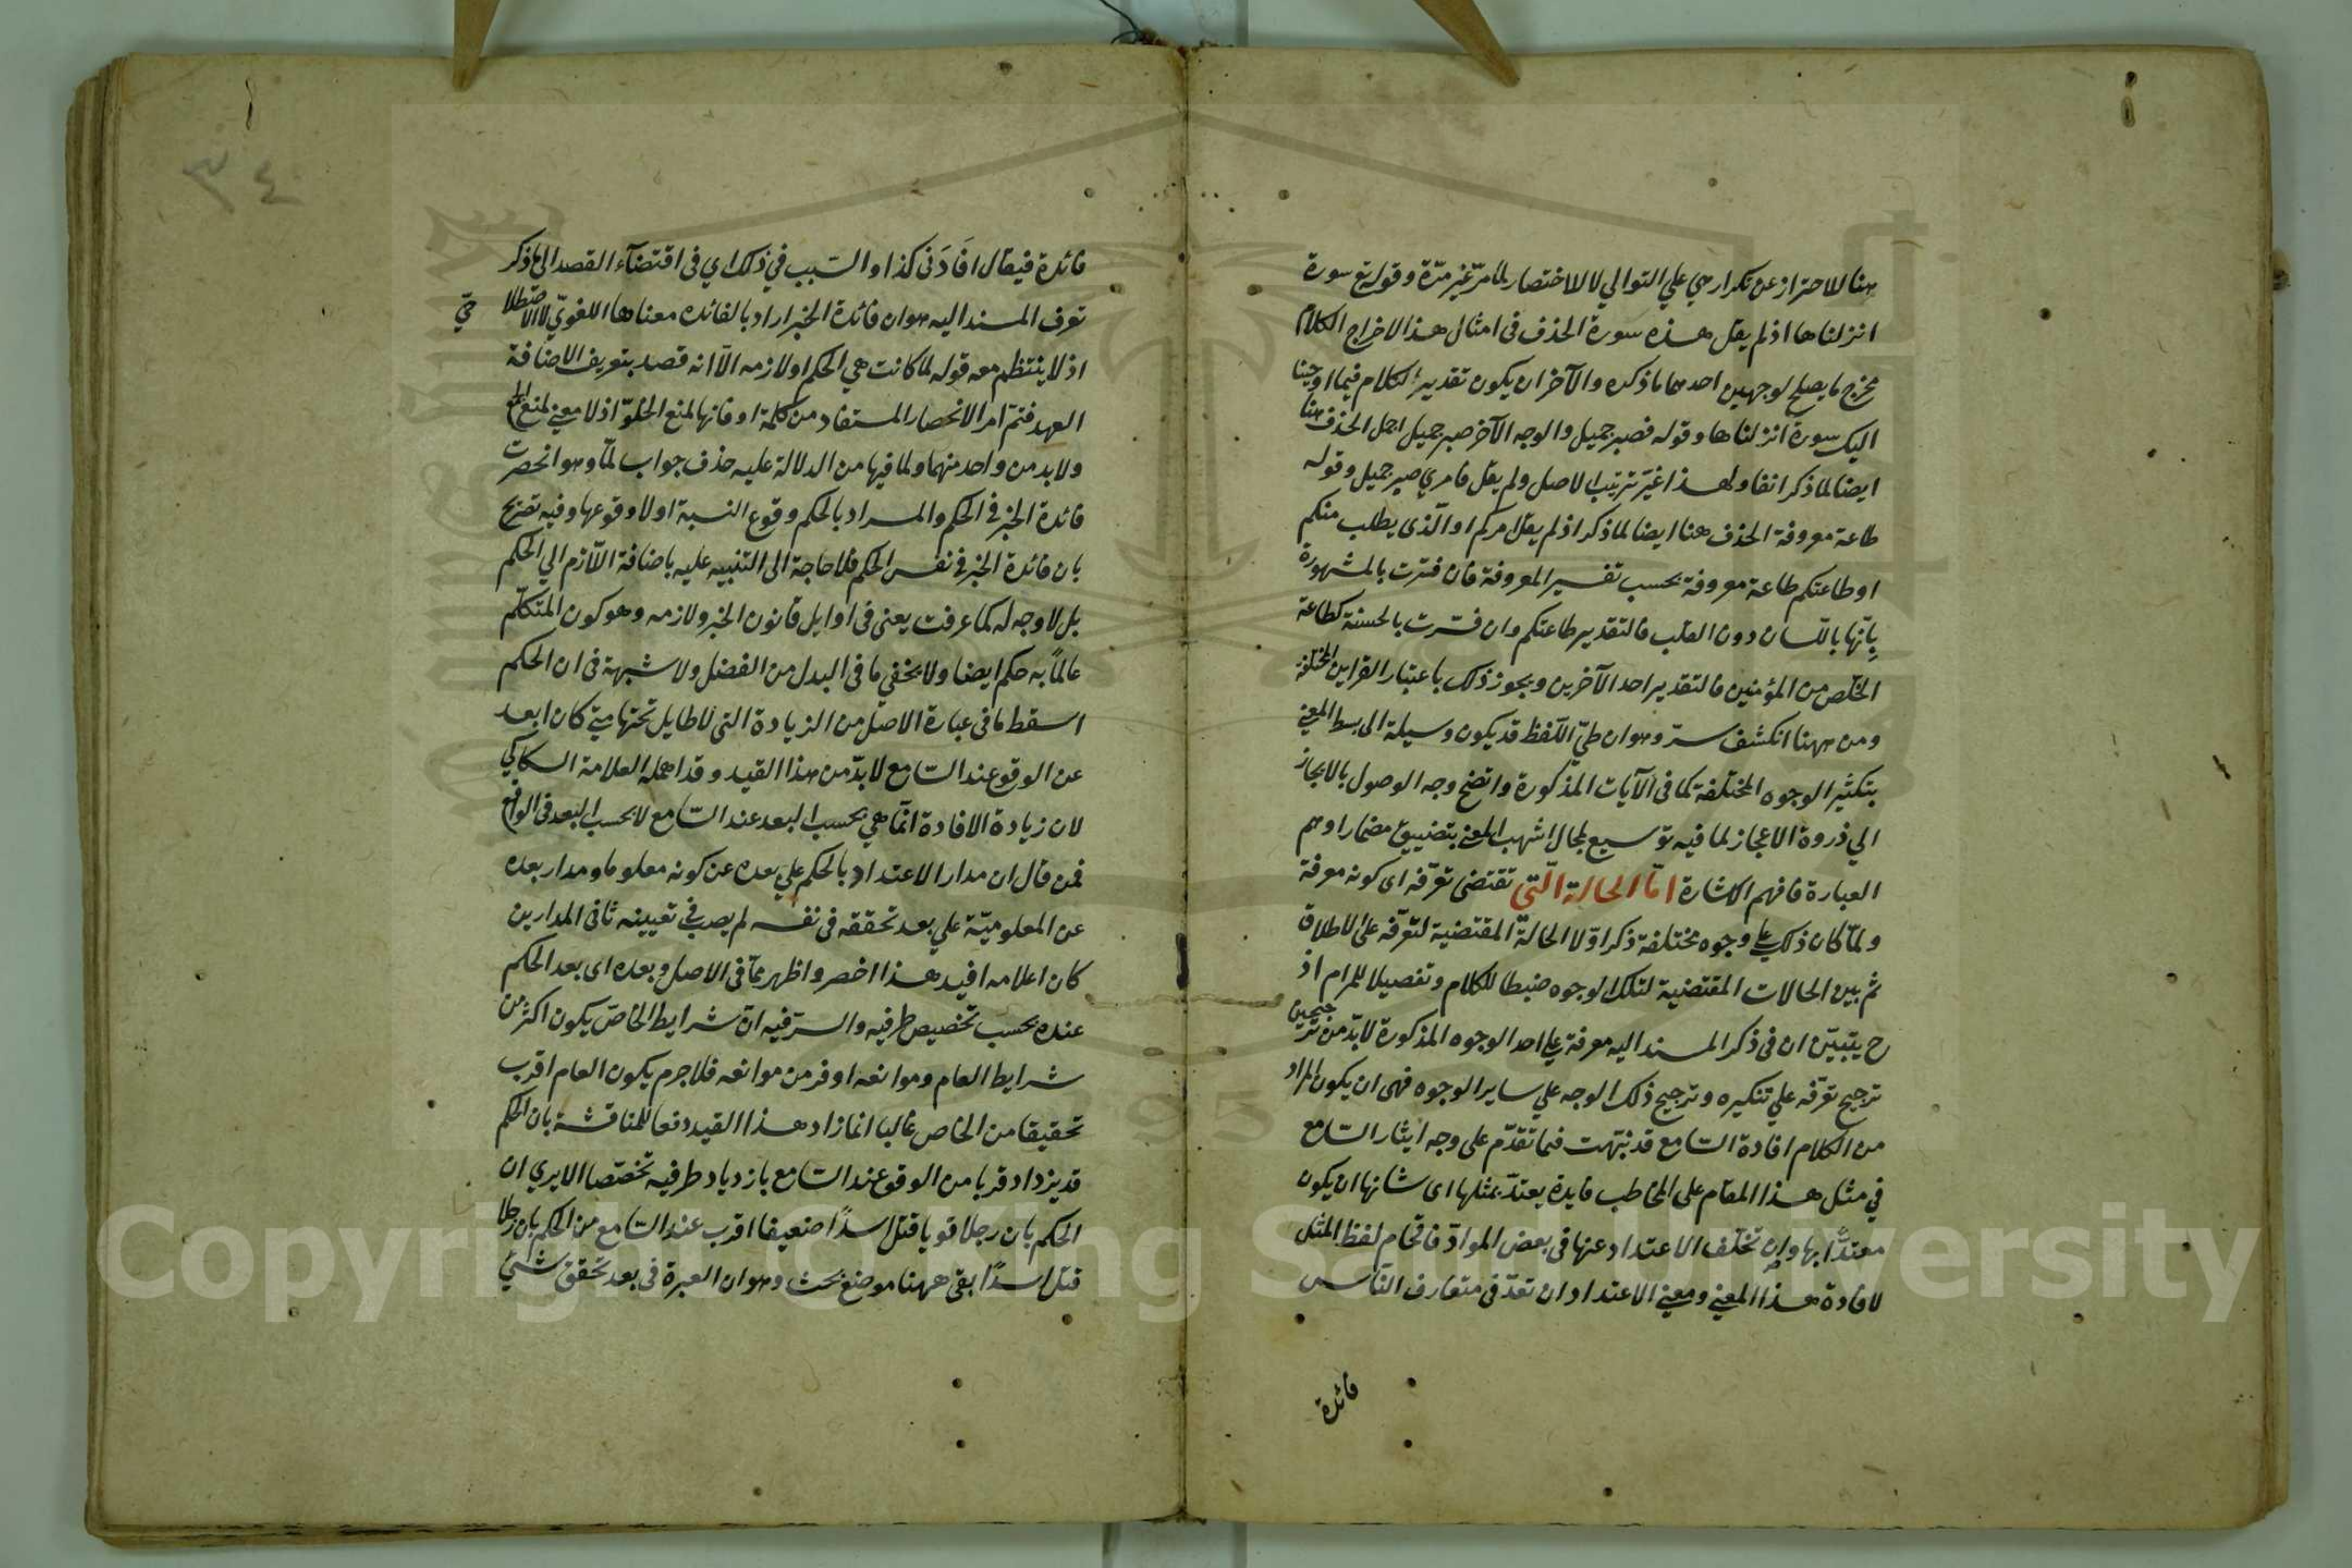 هنا للاحتراز عن تكرار هي علي التوالي لا للاختصار لما مرّ غير مرّة وقوله تع سورة
انزلناها اذ لم يقل هذه سورة الحذف في امثال هذا لاخراج الكلام
مخرج ما يصلح لوجهين احدهما ما ذكره والآخر ان يكون تقدير الكلام فيما اوحينا
اليك سورة انزلناها وقوله فصبر جميل والوجه الآخر صبر جميل اجمل الحذف هنا
ايضا لما ذكر انفا ولهذا غيّر ترتيب الاصل ولم يقل فامري صبر جميل وقوله
طاعة معروفة الحذف هنا ايضا لما ذكر اذ لم يقل امركم او الّذى يطلب منكم
او طاعتكم طاعة معروفة بحسب تفسير المعروفة فان فسّرت بالمشهورة
بانّها باللّسان دون القلب فالتقدير طاعتكم وان فسّرت بالحسنة كطاعة
الخلّص من المؤمنين فالتقدير احد الآخرين ويجوز ذلك باعتبار القراين المختلفة
ومن ههنا انكشف سرّ وهو ان طيّ اللّفظ قد يكون وسيلة الى بسط المعني
بتكثير الوجوه المختلفة كما في الآيات المذكورة واتضح وجه الوصول بالايجاز
الي ذروة الاعجاز لما فيه توسيع لمجال اشهب المعني بتضييق مضمار ادهم
العبارة فافهم الاشارة امّا الحالة الّتي تقتضى تعرّفه اى كونه معرفة
ولمّا كان ذلك علي وجوه مختلفة ذكر اوّلا الحالة المقتضية لتعرّفه على الاطلاق
ثم بين الحالات المقتضية لتلك الوجوه ضبطا للكلام وتفصيلا للمرام اذ
ح يتبيّن ان في ذكر المسند اليه معرفة علي احد الوجوه المذكورة لابدّ من ترجيحين
ترجيح تعرّفه علي تنكيره وترجيح ذلك الوجه علي ساير الوجوه فهى ان يكون المراد
من الكلام افادة السّامع قد نبّهت فيما تقدّم على وجه ايثار السّامع
في مثل هذا المقام على المخاطب فايدة يعتدّ بمثلها اى شانها ان يكون
معتدًّا بها وان تخلّف الاعتداد عنها في بعض الموادّ فاقحام لفظ المثل
لافادة هذا المعني ومعني الاعتداد ان تعدّ في متعارف النّاس
فائدة
٣٤
فائدة فيقال افَادَنى كذا والسّبب في ذلك اي في اقتضآء القصد الى ما ذكر
تعرف المسند اليه هو ان فائدة الخبر اراد بالفائده معناها اللغويّ لا الاصطلاحيّ
اذ لا ينتظم معه قوله لما كانت هي الحكم او لازمه الّا انه قصد بتعريف الاضافة
العهد فتمّ امر الانحصار المستفاد من كلمة او فانها لمنع الخلوّ اذ لا معني لمنع الجمع
ولابد من واحد منهما ولما فيها من الدلالة عليه حذف جواب لمّا وهو انحصرت
فائدة الخبر في الحكم والمراد بالحكم وقوع النسبة او لا وقوعها وفيه تصريح
بان فائدة الخبر في نفس الحكم فلا حاجة الى التنبيه عليه باضافة اللّازم الي الحكم
بل لا وجه له كما عرفت يعنى في اوايل قانون الخبر ولازمه وهو كون المتكلّم
عالماً به حكم ايضا ولا يخفي ما في البدل من الفضل ولا شبهة في ان الحكم
اسقط ما في عبارة الاصل من الزيادة التى لا طايل تحتها متى كان ابعد
عن الوقوع عند السّامع لابدّ من هذا القيد وقد اهمله العلامة السكاكي
لان زيادة الافادة انّما هي بحسب البعد عند السّامع لا بحسب البعد في الواقع
فمن قال ان مدار الاعتداد بالحكم علي بعده عن كونه معلوما ومدار بعده
عن المعلوميّة علي بعد تحققه في نفسه لم يصب في تعيينه ثاني المدارين
كان اعلامه افيد هذا اخصر واظهر ممّا في الاصل وبعده اى بعد الحكم
عنده بحسب تخصيص طرفيه والسرّ فيه انّ شرايط الخاصّ يكون اكثر من
شرايط العام وموانعه اوفر من موانعه فلا جرم يكون العام اقرب
تحقيقا من الخاص غالبا انما زاد هذا القيد دفعا للمناقشة بان الحكم
قد يزداد قربا من الوقوع عند السّامع بازدياد طرفيه تخصّصا الا يري ان
الحكم بان رجلا قويا قتل اسدًا ضعيفا اقرب عند السّامع من الحكم بان رجلا
قتل اسدًا بقى ههنا موضع بحث وهو ان العبرة في بعد تحقق شيئ
Copyright © King Saud University